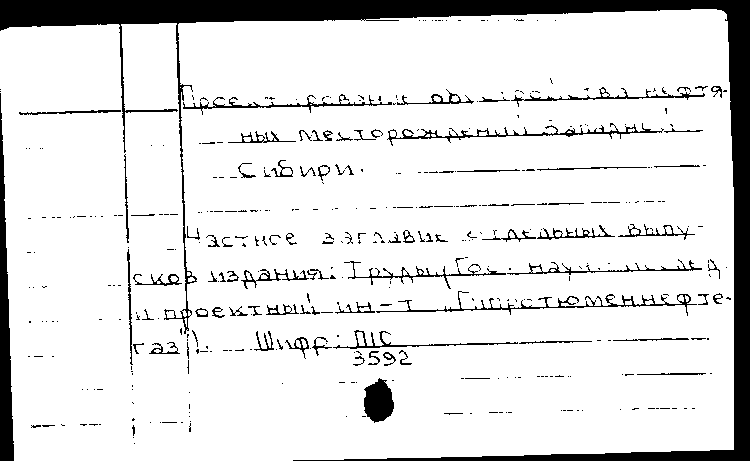 Проектирование обустройства нефтя-
ных месторождений Западной
Сибири.
Частное заглавие отдельных выпу-
сков издания: Труды (Гос. науч.-исслед.
и проектный ин-т „Гипротюменнефте-
газ"). Шифр: П1С
3592